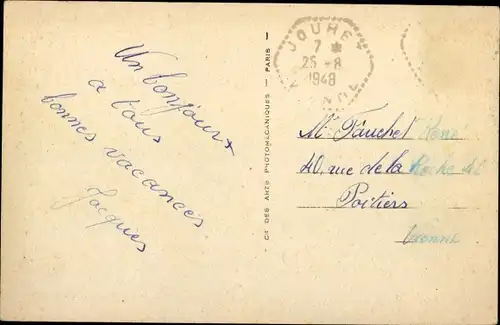 Un bonjour
a tous
bonnes vacances
Jacques
Cie DES ARTS PHOTOMÉCANIQUES - PARIS
JOUHET
7 *
25 -8
1948
VIENNE
Mr Fauchet René
40, rue de la Roche
Poitiers
Vienne